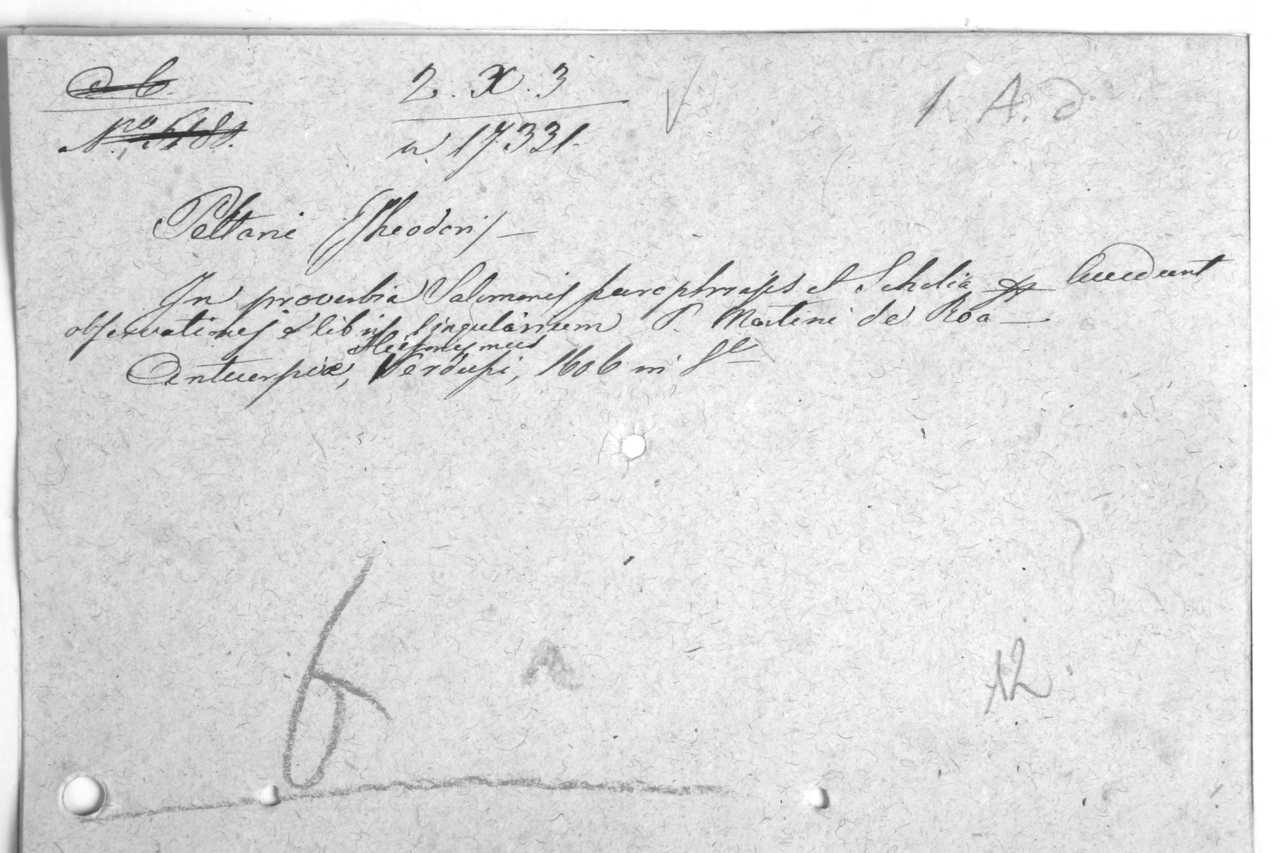 2. X. 3
1. A. d
n. 17331.
Peltani (Theodori) —
In proverbia Salomonis paraphrasis et Scholia Accedunt
observationes e libris singularium P. Martini de Roa —
Hieronymus
Antuerpiæ, Verdusi, 1606 in 8º
6
12